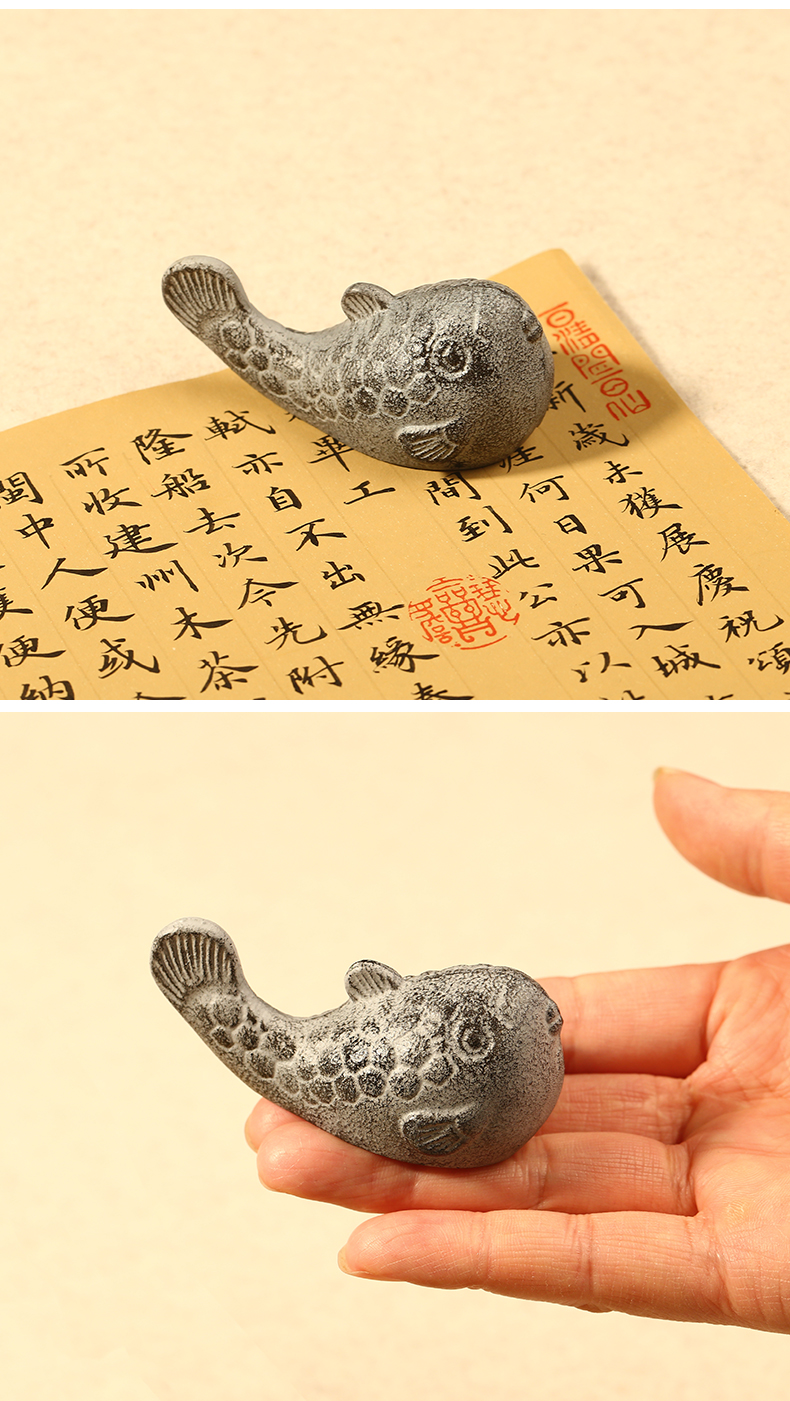 新歲未獲展慶祝頌
涯何日果可入城
間到此公亦以
畢工
軾亦自不出無緣奉
隆船去次今先附
所收建州木茶
閩中人便或
便納